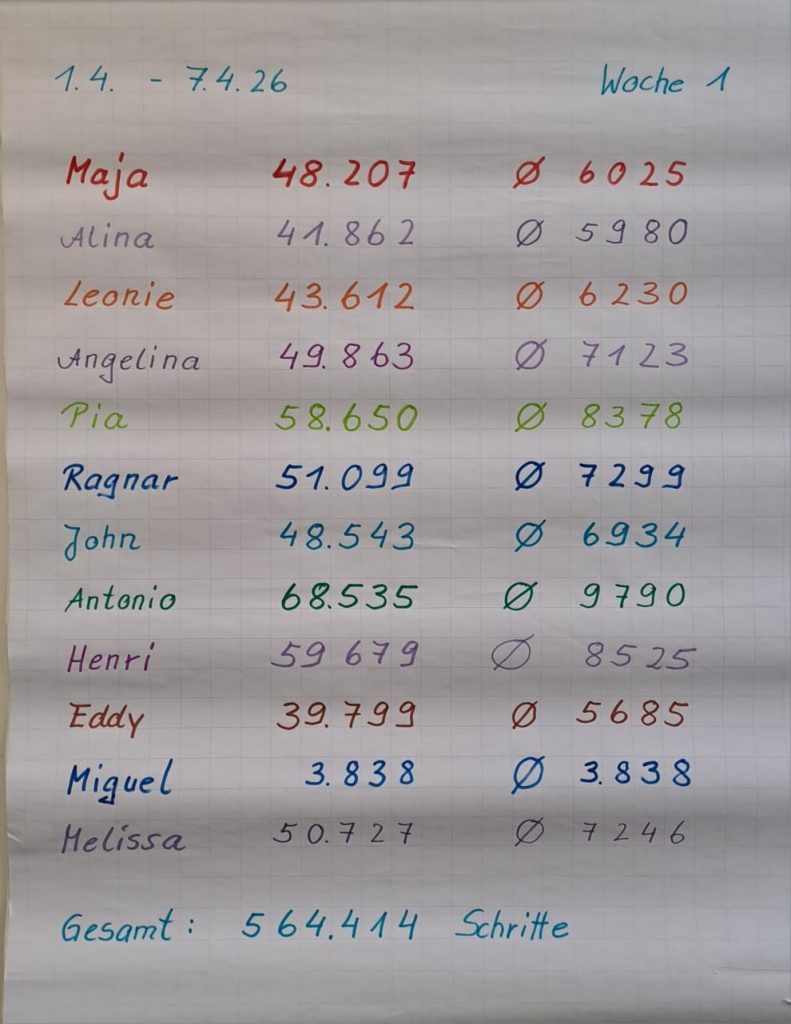 1.4. - 7.4.26 Woche 1
Maja 48.207 Ø 6025
Alina 41.862 Ø 5980
Leonie 43.612 Ø 6230
Angelina 49.863 Ø 7123
Pia 58.650 Ø 8378
Ragnar 51.099 Ø 7299
John 48.543 Ø 6934
Antonio 68.535 Ø 9790
Henri 59 679 Ø 8525
Eddy 39.799 Ø 5685
Miguel 3.838 Ø 3.838
Melissa 50.727 Ø 7246
Gesamt: 564.414 Schritte